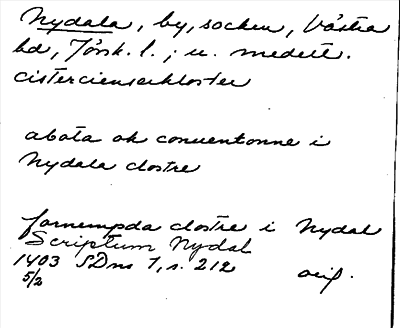 Nydala, by, socken, Västra
hd, Jönk. l.; u. medelt.
cistercienserkloster
abota ok conuentonne i
Nydala clostre
fornempda clostre i Nydal
Scriptum Nydal
1403 SDns 1, s. 212
5/2 orig.